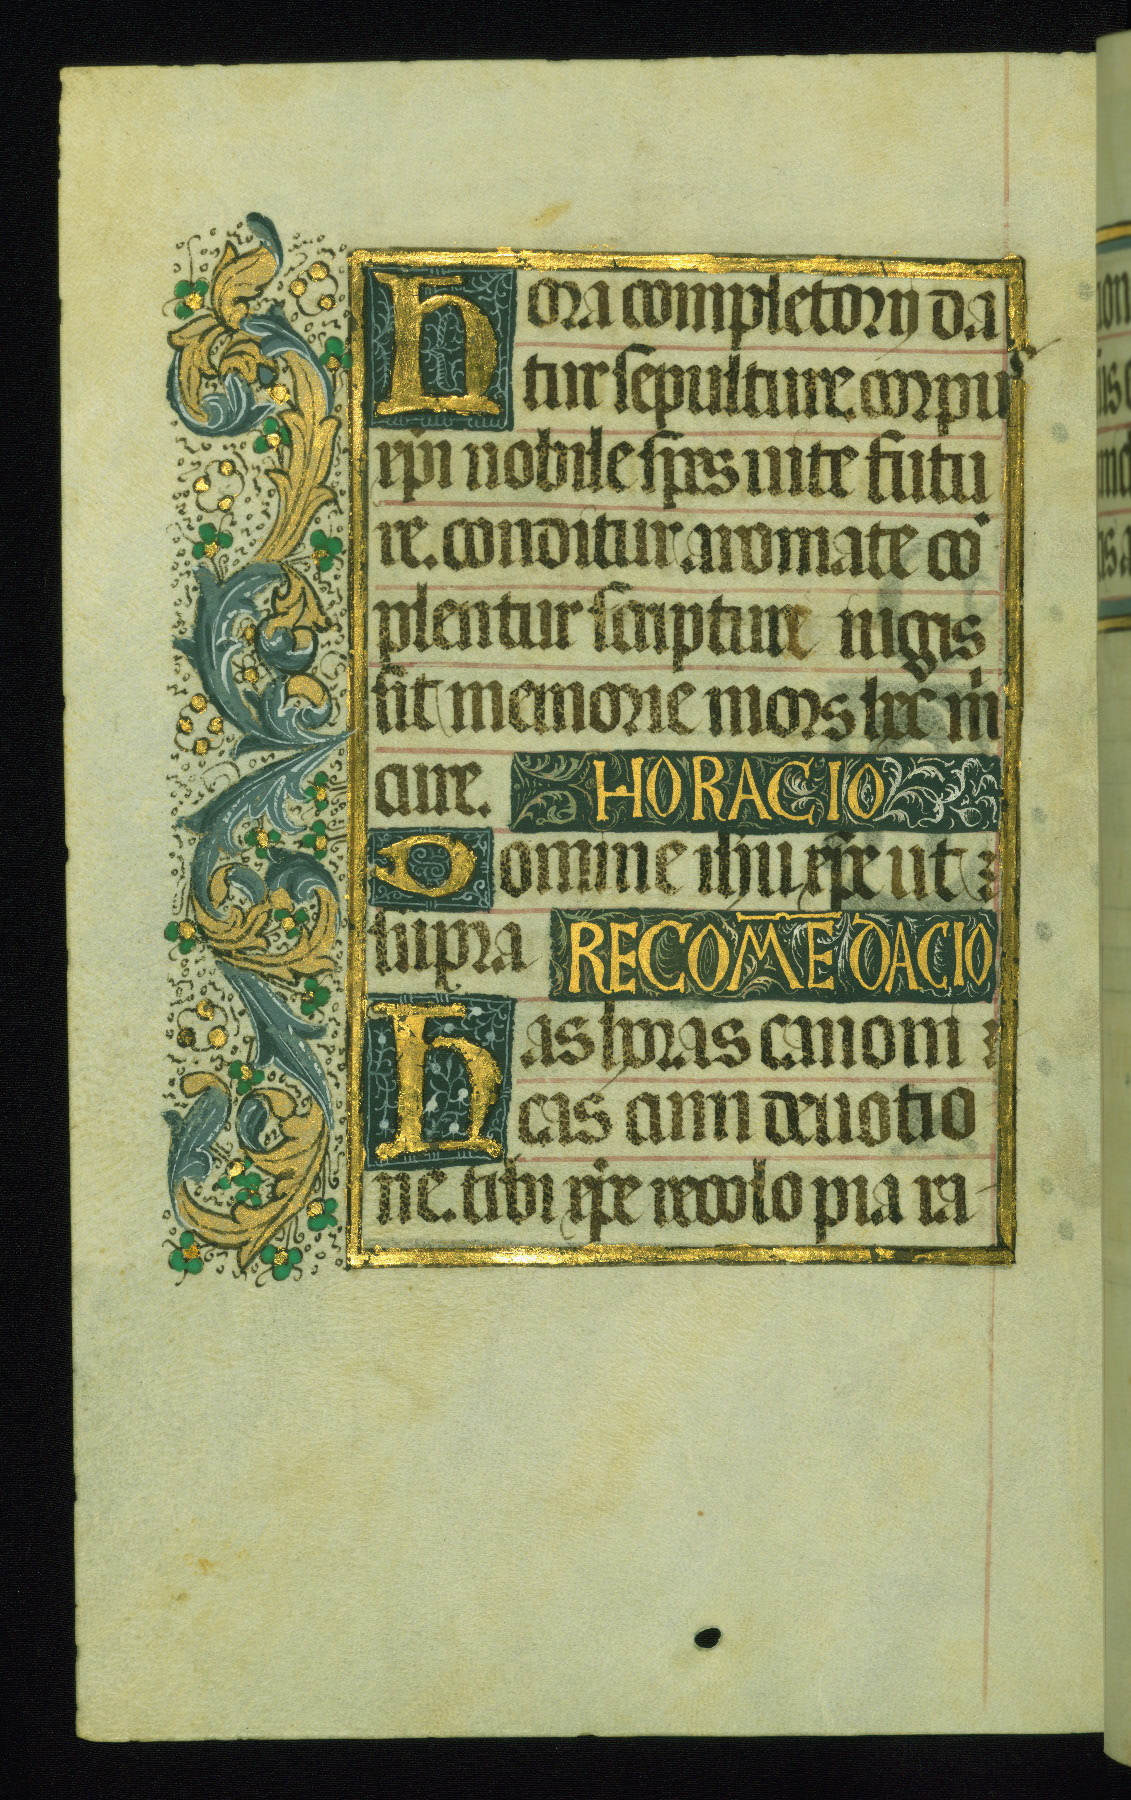 Hora completorij da
tur sepulture. corpus
xpi nobile spes uite futu
re. conditur aromate co
plentur scripture iugis
sit memorie mors hec m
cure. HORACIO
Domine ihu xpe ut
supra RECOMEDACIO
Has horas canoni
cas cum deuotio
ne. tibi xpe recolo pia ra